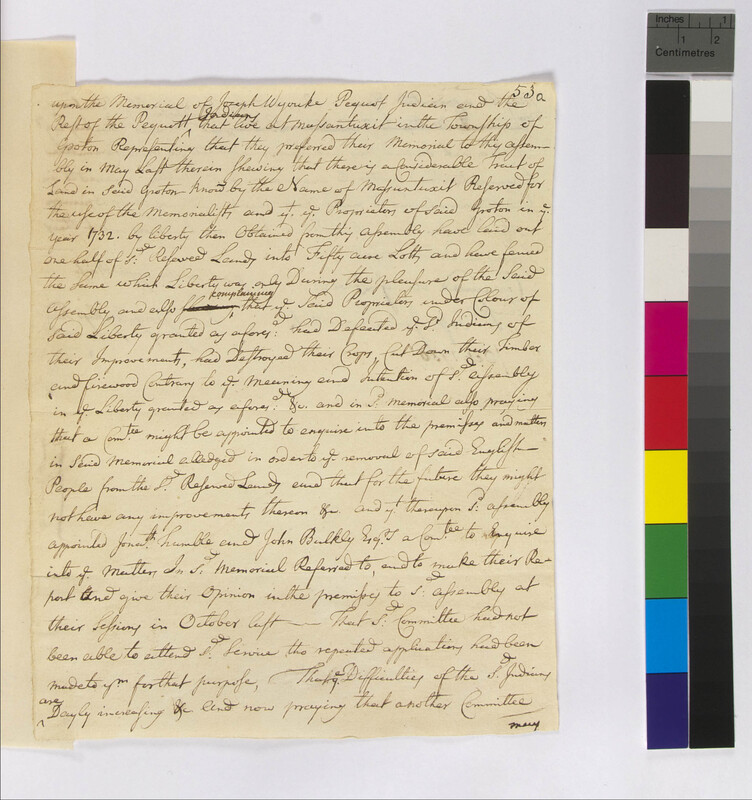 Inches 1
1 2
Centimetres
53a
upon the Memorial of Joseph Wyouke Pequot Indian and the
Rest of the Pequott Indians that live at Mussantuxit in the Township of
Groton Representing that they preferred their Memorial to this assem-
bly in May Last therein shewing that there is a Considerable Tract of
Land in said Groton know.n by the Name of Massuntuxit Reserved for
the use of the Memorialists and yt. ye. Proprietors of said Groton in ye.
year 1732. by liberty then Obtained from this assembly have laid out
one half of sd. Reserved Lands into Fifty acre Lotts and have fenced
the same which Liberty was only During the pleasure of the said
Assembly and also complaining that ye. said Proprietors under Colour of
said Liberty granted as afores.d had Defeated ye. sd. Indians of
their Improvements, had Destroyed their Crops, Cut Down their Timber
and firewood Contrary to ye. Meaning and Intention of sd. assembly
in ye. Liberty granted as afores.d &c. and in sd. memorial also praying
that a Com.tee might be appointed to enquire into the premisses and matters
in said Memorial alledged in order to ye. removal of said English
People from the sd. Reserved Lands and that for the future they might
not have any improvements thereon &c. and yt. thereupon sd. assembly
appointed Jona.th Humble and John Bulkly Esqrs. a Com.tee to Enquire
into ye. Matters In sd. Memorial Referred to, and to make their Re-
port and give their Opinion in the premisses to sd. assembly at
their Sessions in October last — That sd. Committee had not
been able to attend sd. Service tho repeated applications had been
made to ym for that purpose, That ye Difficulties of the sd. Indians
are Dayly increasing &c and now praying that another Committee
may